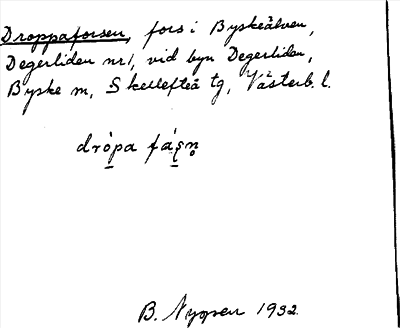 Droppaforsen, fors i Byskeälven,
Degerliden nr 1, vid byn Degerliden,
Byske sn, Skellefteå tg, Västerb. l.
drópa fáʂn̥
B. Nygren 1932.